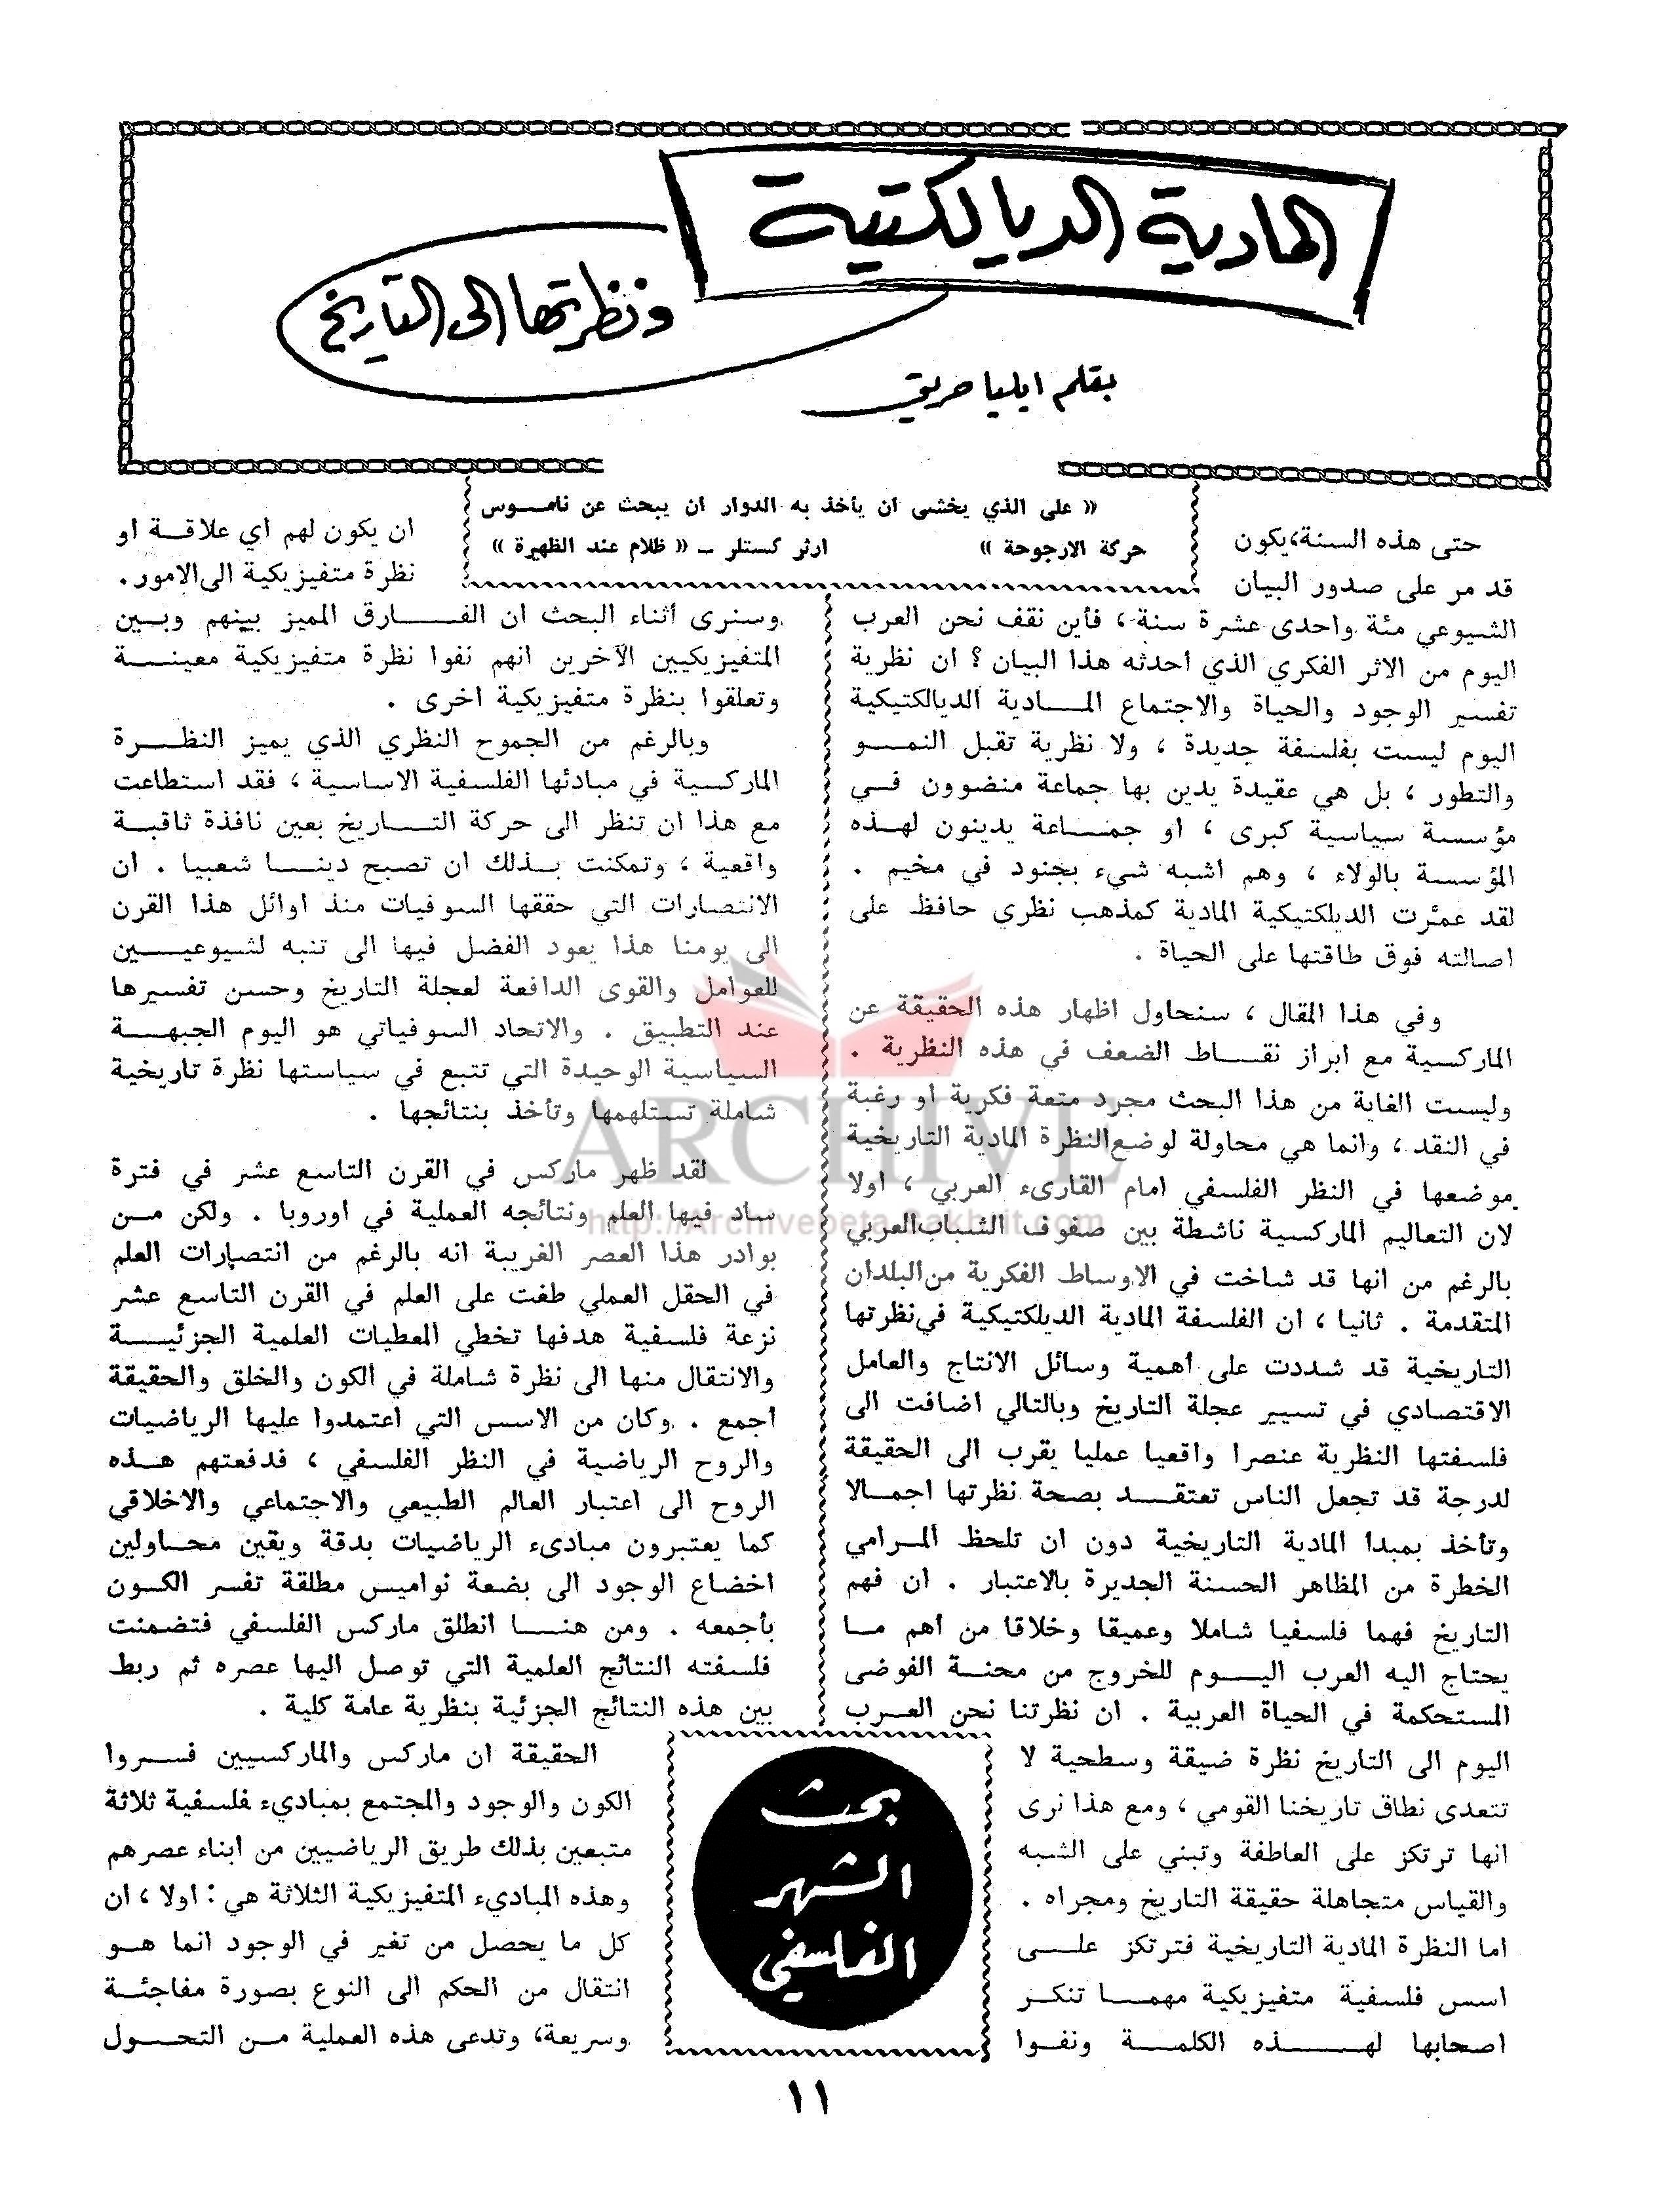 المادية الديالكتية
ونظرتها الى التاريخ
بقلم ايليا حريق
« على الذي يخشى ان يأخذ به الدوار ان يبحث عن ناموس
حركة الارجوحة » ارثر كستلر - « ظلام عند الظهيرة »
حتى هذه السنة، يكون
قد مر على صدور البيان
الشيوعي مئة واحدى عشرة سنة ، فأين نقف نحن العرب
اليوم من الاثر الفكري الذي احدثه هذا البيان ؟ ان نظرية
تفسير الوجود والحياة والاجتماع المادية الديالكتيكية
اليوم ليست بفلسفة جديدة ، ولا نظرية تقبل النمو
والتطور ، بل هي عقيدة يدين بها جماعة منضوون في
مؤسسة سياسية كبرى ، او جماعة يدينون لهذه
المؤسسة بالولاء ، وهم اشبه شيء بجنود في مخيم .
لقد عمّرت الديلكتيكية المادية كمذهب نظري حافظ على
اصالته فوق طاقتها على الحياة .
وفي هذا المقال ، سنحاول اظهار هذه الحقيقة عن
الماركسية مع ابراز نقاط الضعف في هذه النظرية .
وليست الغاية من هذا البحث مجرد متعة فكرية او رغبة
في النقد ، وانما هي محاولة لوضع النظرة المادية التاريخية
موضعها في النظر الفلسفي امام القارىء العربي ، اولا
لان التعاليم الماركسية ناشطة بين صفوف الشباب العربي
بالرغم من انها قد شاخت في الاوساط الفكرية من البلدان
المتقدمة . ثانيا ، ان الفلسفة المادية الديلكتيكية في نظرتها
التاريخية قد شددت على أهمية وسائل الانتاج والعامل
الاقتصادي في تسيير عجلة التاريخ وبالتالي اضافت الى
فلسفتها النظرية عنصرا واقعيا عمليا يقرب الى الحقيقة
لدرجة قد تجعل الناس تعتقد بصحة نظرتها اجمالا
وتأخذ بمبدا المادية التاريخية دون ان تلحظ المرامي
الخطرة من المظاهر الحسنة الجديرة بالاعتبار . ان فهم
التاريخ فهما فلسفيا شاملا وعميقا وخلاقا من أهم ما
يحتاج اليه العرب اليوم للخروج من محنة الفوضى
المستحكمة في الحياة العربية . ان نظرتنا نحن العرب
اليوم الى التاريخ نظرة ضيقة وسطحية لا
تتعدى نطاق تاريخنا القومي ، ومع هذا نرى
انها ترتكز على العاطفة وتبني على الشبه
والقياس متجاهلة حقيقة التاريخ ومجراه .
اما النظرة المادية التاريخية فترتكز على
اسس فلسفية متفيزيكية مهما تنكر
اصحابها لهذه الكلمة ونفوا
ان يكون لهم اي علاقة او
نظرة متفيزيكية الى الامور .
وسنرى اثناء البحث ان الفارق المميز بينهم وبين
المتفيزيكيين الآخرين انهم نفوا نظرة متفيزيكية معينة
وتعلقوا بنظرة متفيزيكية اخرى .
وبالرغم من الجموح النظري الذي يميز النظرة
الماركسية في مبادئها الفلسفية الاساسية ، فقد استطاعت
مع هذا ان تنظر الى حركة التاريخ بعين نافذة ثاقبة
واقعية ، وتمكنت بذلك ان تصبح دينا شعبيا . ان
الانتصارات التي حققها السوفيات منذ اوائل هذا القرن
الى يومنا هذا يعود الفضل فيها الى تنبه لشيوعيين
للعوامل والقوى الدافعة لعجلة التاريخ وحسن تفسيرها
عند التطبيق . والاتحاد السوفياتي هو اليوم الجبهة
السياسية الوحيدة التي تتبع في سياستها نظرة تاريخية
شاملة تستلهمها وتأخذ بنتائجها .
لقد ظهر ماركس في القرن التاسع عشر في فترة
ساد فيها العلم ونتائجه العملية في اوروبا . ولكن من
بوادر هذا العصر الغريبة انه بالرغم من انتصارات العلم
في الحقل العملي طفت على العلم في القرن التاسع عشر
نزعة فلسفية هدفها تخطي المعطيات العلمية الجزئية
والانتقال منها الى نظرة شاملة في الكون والخلق والحقيقة
اجمع . وكان من الاسس التي اعتمدوا عليها الرياضيات
والروح الرياضية في النظر الفلسفي ، فدفعتهم هذه
الروح الى اعتبار العالم الطبيعي والاجتماعي والاخلاقي
كما يعتبرون مبادىء الرياضيات بدقة ويقين محاولين
اخضاع الوجود الى بضعة نواميس مطلقة تفسر الكون
بأجمعه . ومن هنا انطلق ماركس الفلسفي فتضمنت
فلسفته النتائج العلمية التي توصل اليها عصره ثم ربط
بين هذه النتائج الجزئية بنظرية عامة كلية .
الحقيقة ان ماركس والماركسيين فسروا
الكون والوجود والمجتمع بمباديء فلسفية ثلاثة
متبعين بذلك طريق الرياضيين من ابناء عصرهم
وهذه المباديء المتفيزيكية الثلاثة هي : اولا ، ان
كل ما يحصل من تغير في الوجود انما هو
انتقال من الحكم الى النوع بصورة مفاجئة
وسريعة، وتدعى هذه العملية من التحول
بحث
الشهر
الفلسفي
١١
ARCHIVE
http://Archivebeta.Sakhrit.com